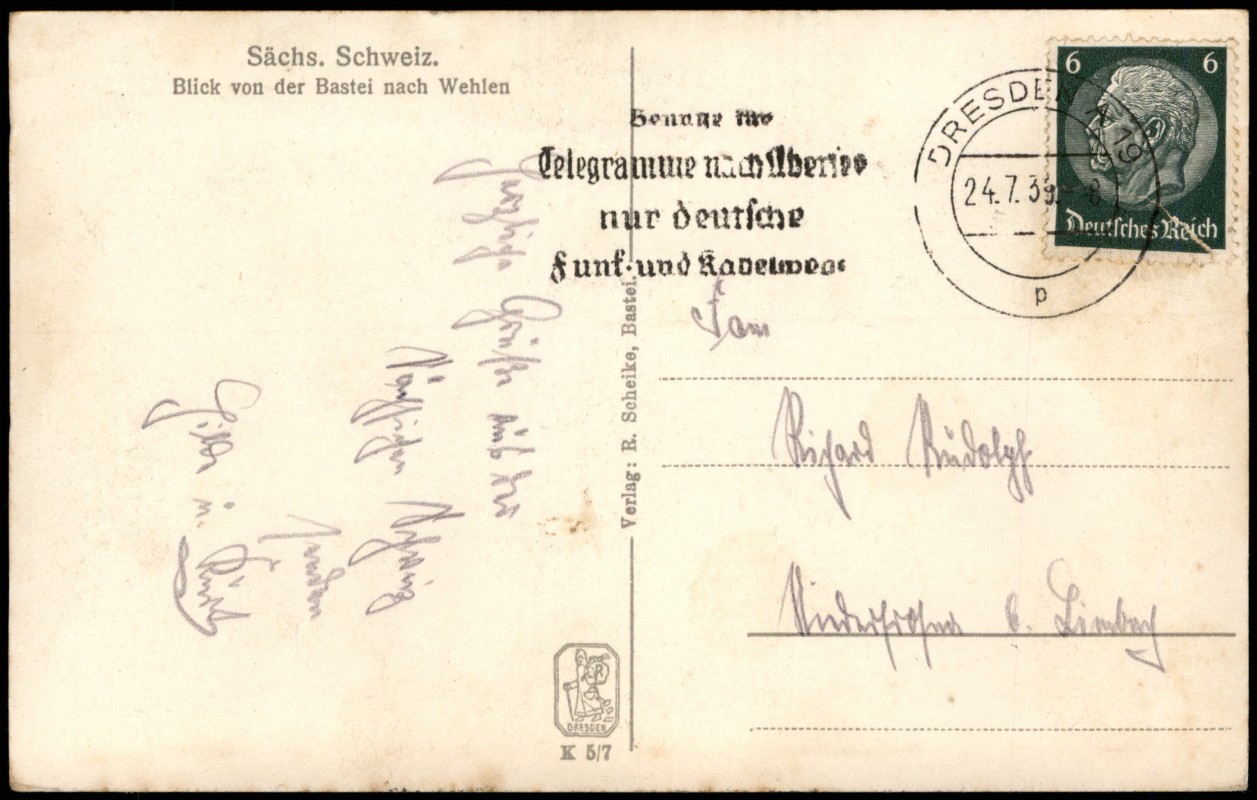 Sächs. Schweiz.
Blick von der Bastei nach Wehlen
Benutze für
Telegramme nach Übersee
nur deutsche
Funk- und Kabelwege
DRESDEN A 19
24.7.39.-8
p
6 6
Deutsches Reich
Herzliche Grüße aus der
Sächsischen Schweiz
senden
Hilde u. Kurt
Verlag: R. Scheike, Bastei.
Fam
Richard Rudolph
Niederfrohna b. Limbach
R
DRESDEN
K 5/7